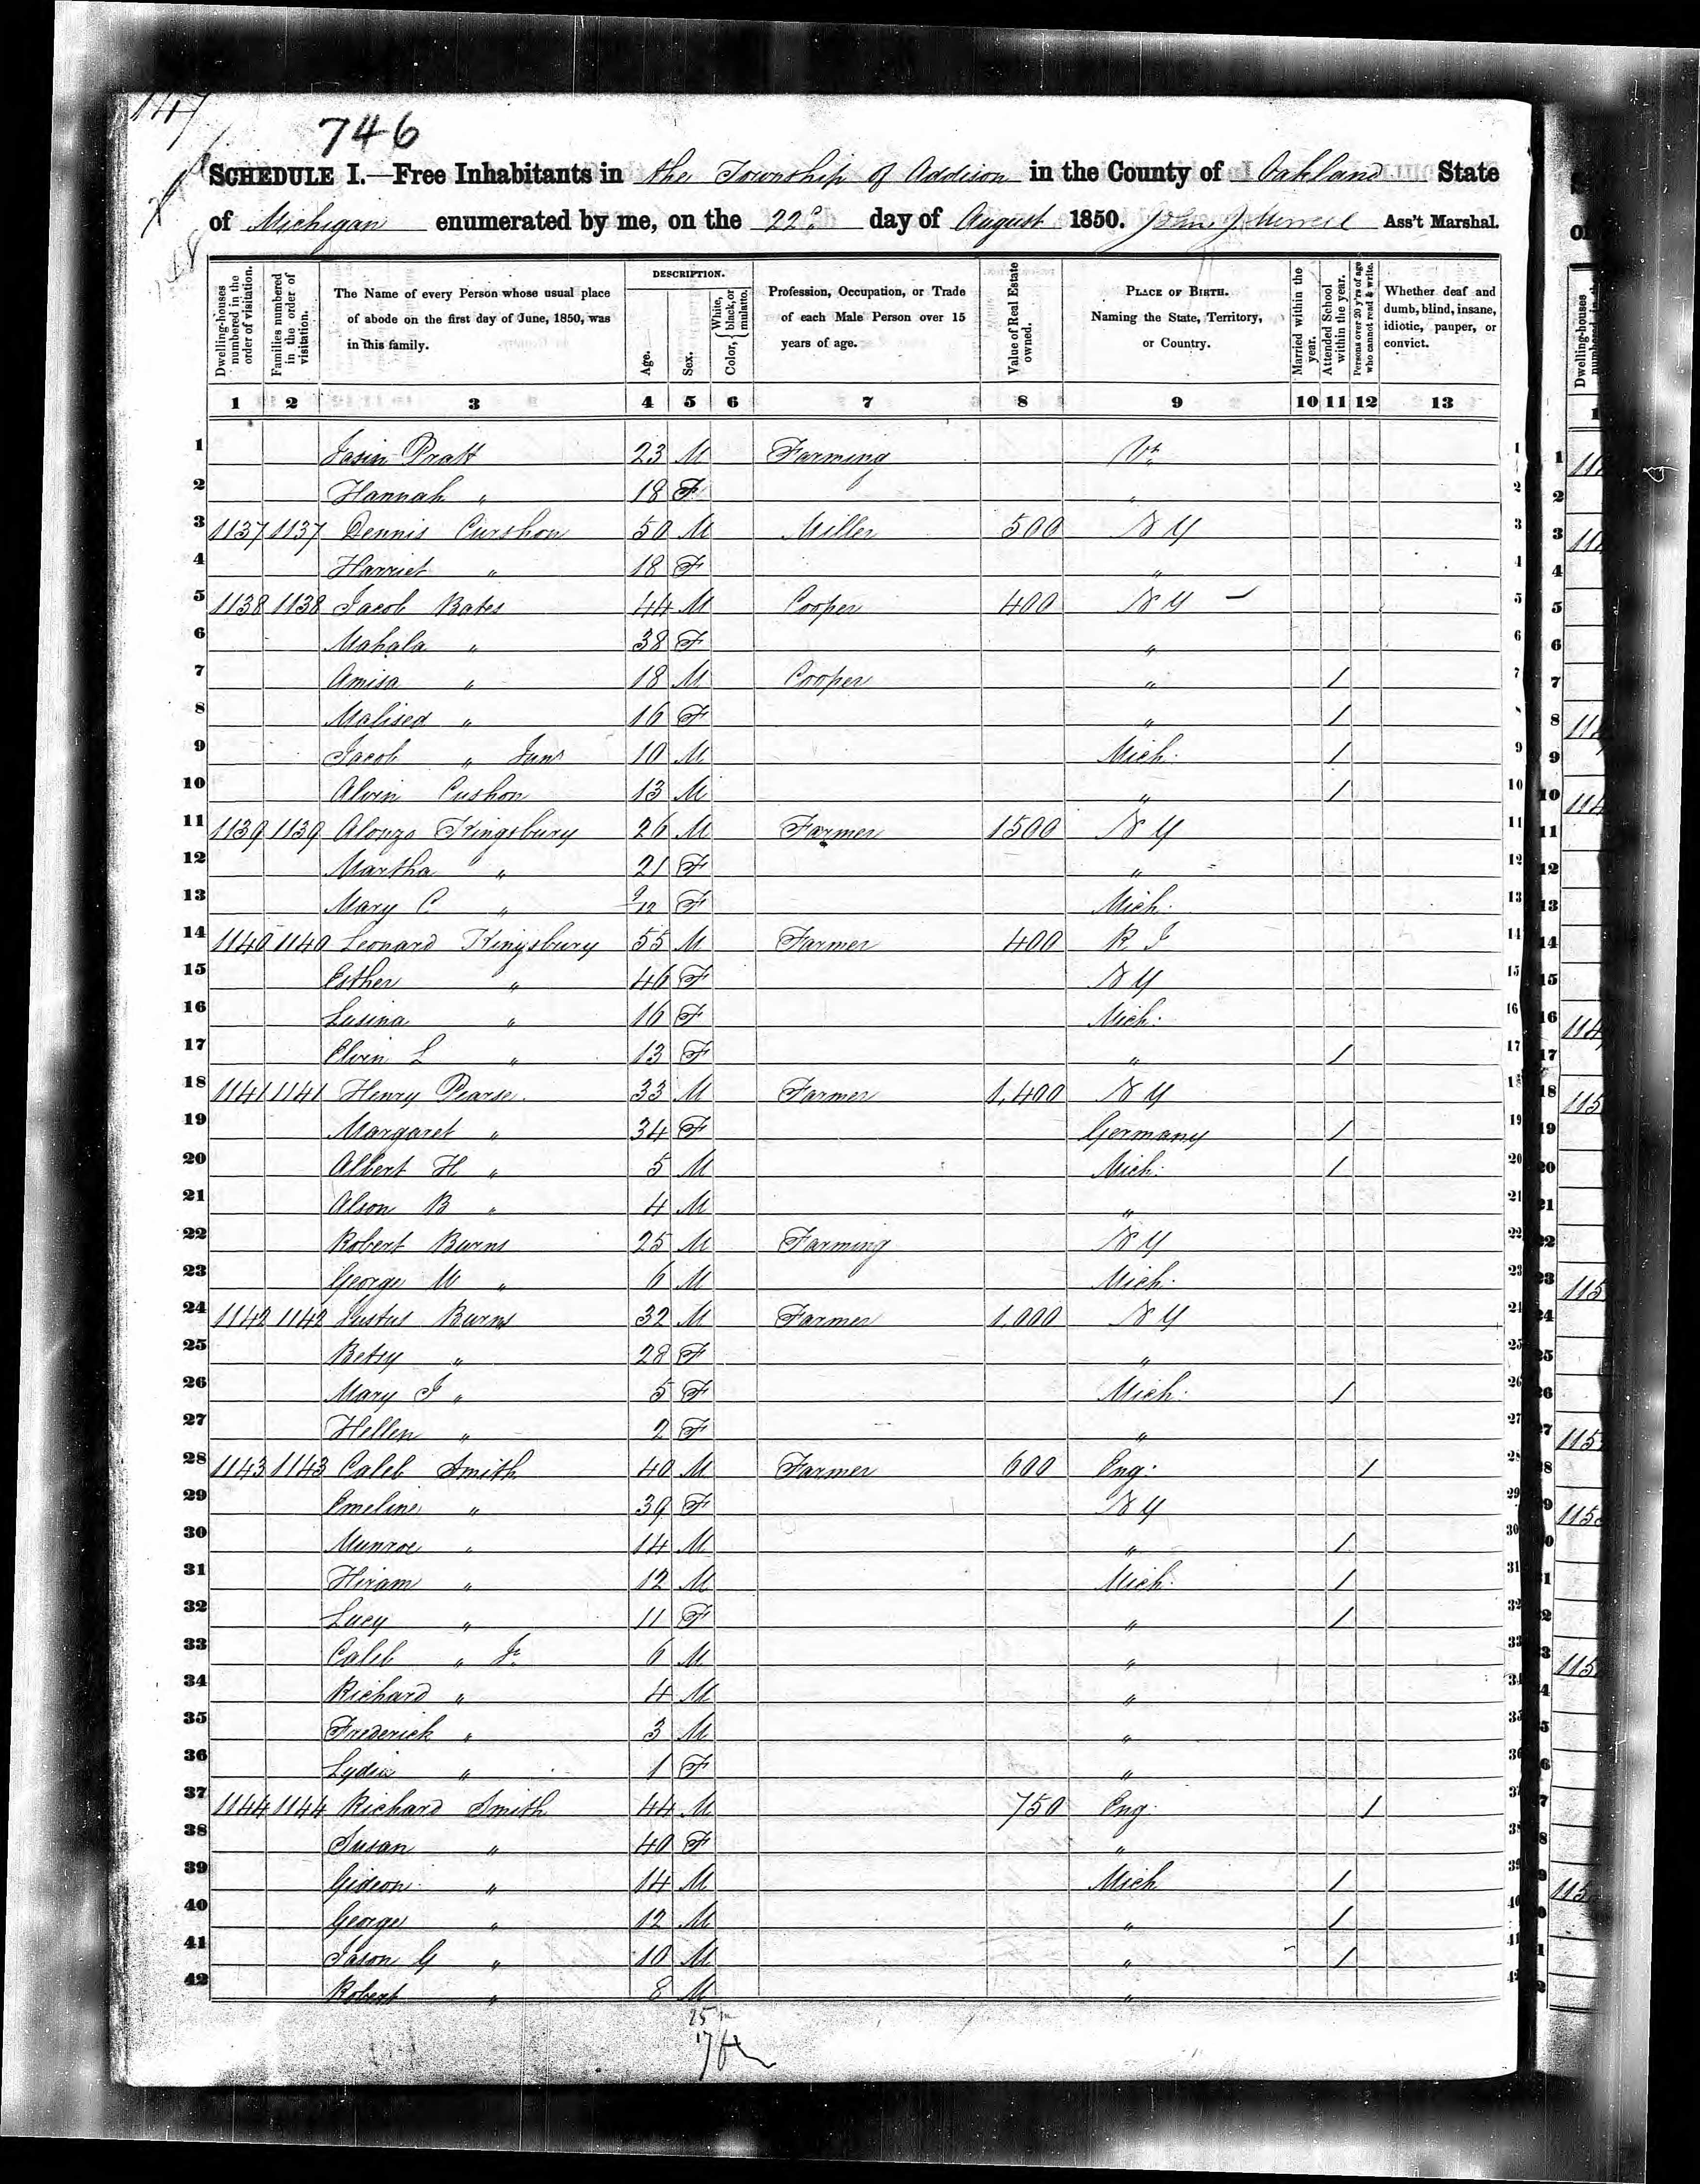 147
746
SCHEDULE I.—Free Inhabitants in the Township of Addison in the County of Oakland State
of Michigan enumerated by me, on the 22d day of August 1850. John J Merrell Ass't Marshal.
Dwelling-houses numbered in the order of visitation.
Families numbered in the order of visitation.
The Name of every Person whose usual place of abode on the first day of June, 1850, was in this family.
DESCRIPTION.
Age.
Sex.
Color, { White, black, or mulatto.
Profession, Occupation, or Trade of each Male Person over 15 years of age.
Value of Real Estate owned.
PLACE OF BIRTH. Naming the State, Territory, or Country.
Married within the year.
Attended School within the year.
Persons over 20 y'rs of age who cannot read & write.
Whether deaf and dumb, blind, insane, idiotic, pauper, or convict.
1 2 3 4 5 6 7 8 9 10 11 12 13
1 Pratt 23 M Farming Vt 1
2 Hannah " 18 F " 2
3 1137 1137 Dennis Curshon 50 M Miller 500 N Y 3
4 Harriet " 18 F " 4
5 1138 1138 Jacob Bates 44 M Cooper 400 N Y 5
6 Mahala " 38 F " 6
7 Amisa " 18 M Cooper " 1 7
8 Malised " 16 F " 1 8
9 Jacob " Junr 10 M Mich. 1 9
10 Alvin Cushon 13 M " 1 10
11 1139 1139 Alonzo Kingsbury 26 M Farmer 1500 N Y 11
12 Martha " 21 F " 12
13 Mary C " 9/12 F Mich. 13
14 1140 1140 Leonard Kingsbury 55 M Farmer 400 R I 14
15 Esther " 46 F N Y 15
16 Lusina " 16 F Mich. 16
17 Elvin L " 13 F " 1 17
18 1141 1141 Henry Pearse 33 M Farmer 1,400 N Y 18
19 Margaret " 34 F Germany 1 19
20 Albert H " 5 M Mich. 1 20
21 Alson B " 4 M " 21
22 Robert Burns 25 M Farming N Y 22
23 George W " 6 M Mich. 23
24 1142 1142 Justus Burns 32 M Farmer 1,000 N Y 24
25 Betsy " 28 F " 25
26 Mary J " 5 F Mich. 1 26
27 Hellen " 2 F " 27
28 1143 1143 Caleb Smith 40 M Farmer 600 Eng. 1 28
29 Emeline " 39 F N Y 29
30 Munroe " 14 M " 1 30
31 Hiram " 12 M Mich. 1 31
32 Lucy " 11 F " 1 32
33 Caleb " Jr 6 M " 33
34 Richard " 4 M " 34
35 Frederick " 3 M " 35
36 Lydia " 1 F " 36
37 1144 1144 Richard Smith 44 M 750 Eng. 1 37
38 Susan " 40 F " 38
39 Gideon " 14 M Mich 1 39
40 George " 12 M " 1 40
41 Jason G " 10 M " 1 41
42 Robert " 8 M " 42
25 m
17 f